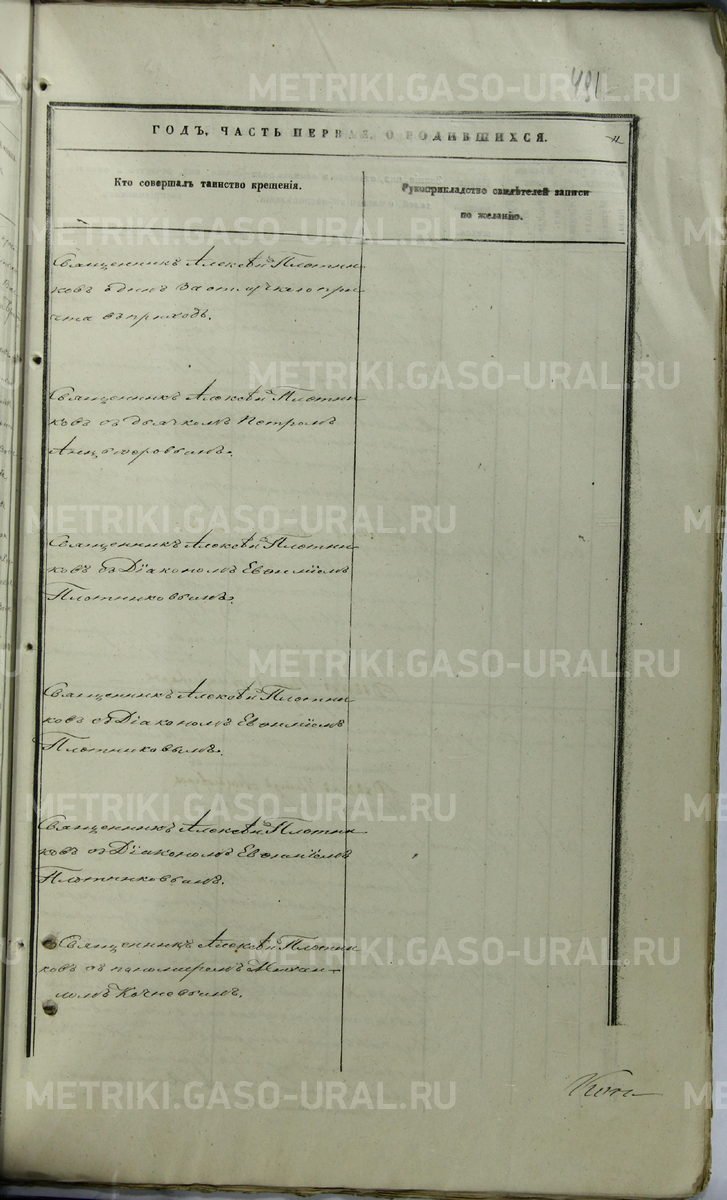 491
METRIKI.GASO-URAL.RU
ГОДЪ, ЧАСТЬ ПЕРВАЯ, О РОДИВШИХСЯ.
Кто совершалъ таинство крещенія.
Рукоприкладство свидѣтелей записи
по желанію.
Священникъ Алексѣй Плотни
ковъ одинъ за отлучкою при
чта въ приходъ.
Священникъ Алексѣй Плотни
ковъ съ дьячкомъ Петромъ
Анцыферовымъ.
Священникъ Алексѣй Плотни
ковъ съ Діакономъ Евѳиміемъ
Плотниковымъ.
Священникъ Алексѣй Плотни
ковъ съ Діакономъ Евѳиміемъ
Плотниковымъ.
Священникъ Алексѣй Плотни
ковъ съ Діакономъ Евѳиміемъ
Плотниковымъ.
Священникъ Алексѣй Плотни
ковъ съ пономаремъ Михаи
ломъ Кочневымъ.